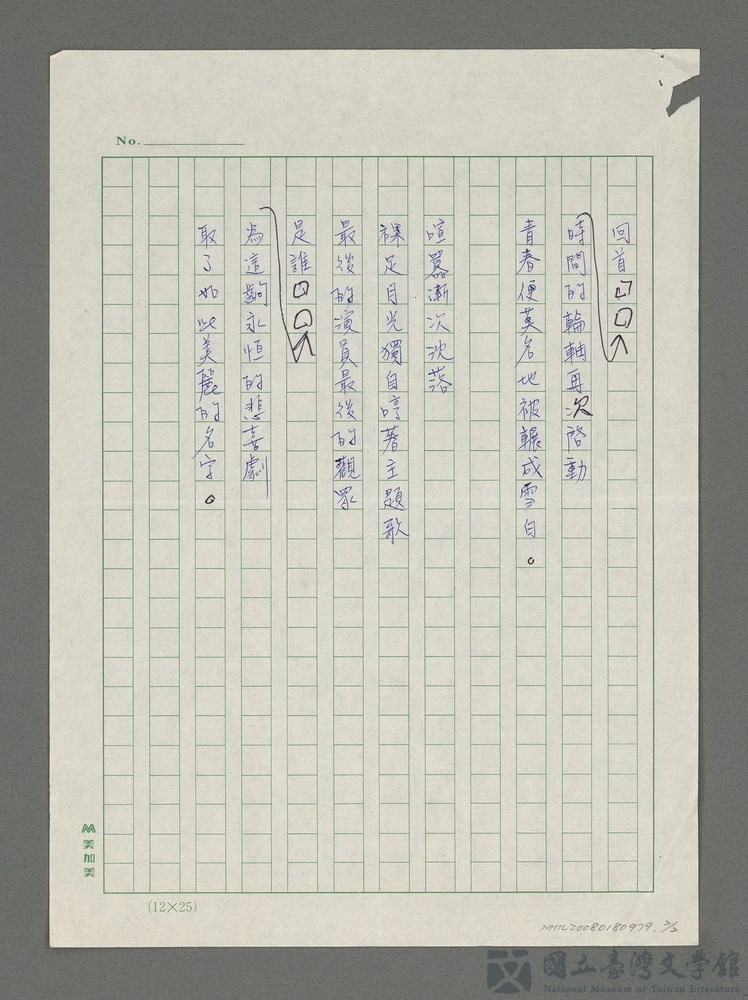 No.
回首□□
時間的輪軸再次啓動
青春便莫名地被輾成雪白。
喧囂漸次沈落
裸足月光獨自哼著主題歌
最後的演員最後的觀眾
是誰□□
為這齣永恒的悲喜劇
取了如此美麗的名字。
美加美
(12×25)
NMTL20080180979. 2/2
國立臺灣文學館
National Museum of Taiwan Literature